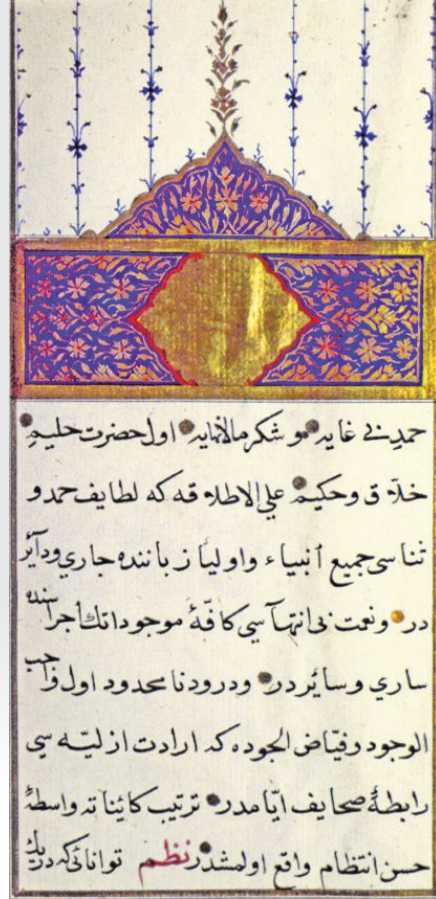 حمد بی غایه و شکر مالانهایه اول حضرت حلیم
خلاق و حکیم علی الاطلاقه که لطایف حمد و
ثناسی جمیع أنبیاء و اولیا زباننده جاری ودآئر
در و نعت بی انتهآسی کافّۀ موجوداتك أجزاسنده
ساری وسائر در ودرود نا محدود اول واجب
الوجود وفیّاض الجوده که ارادت ازلیّه سی
رابطۀ صحایف ایّامدر ترتیب کائناته واسطۀ
حسن انتظام واقع اولمشدر نظم توانائی که دریك